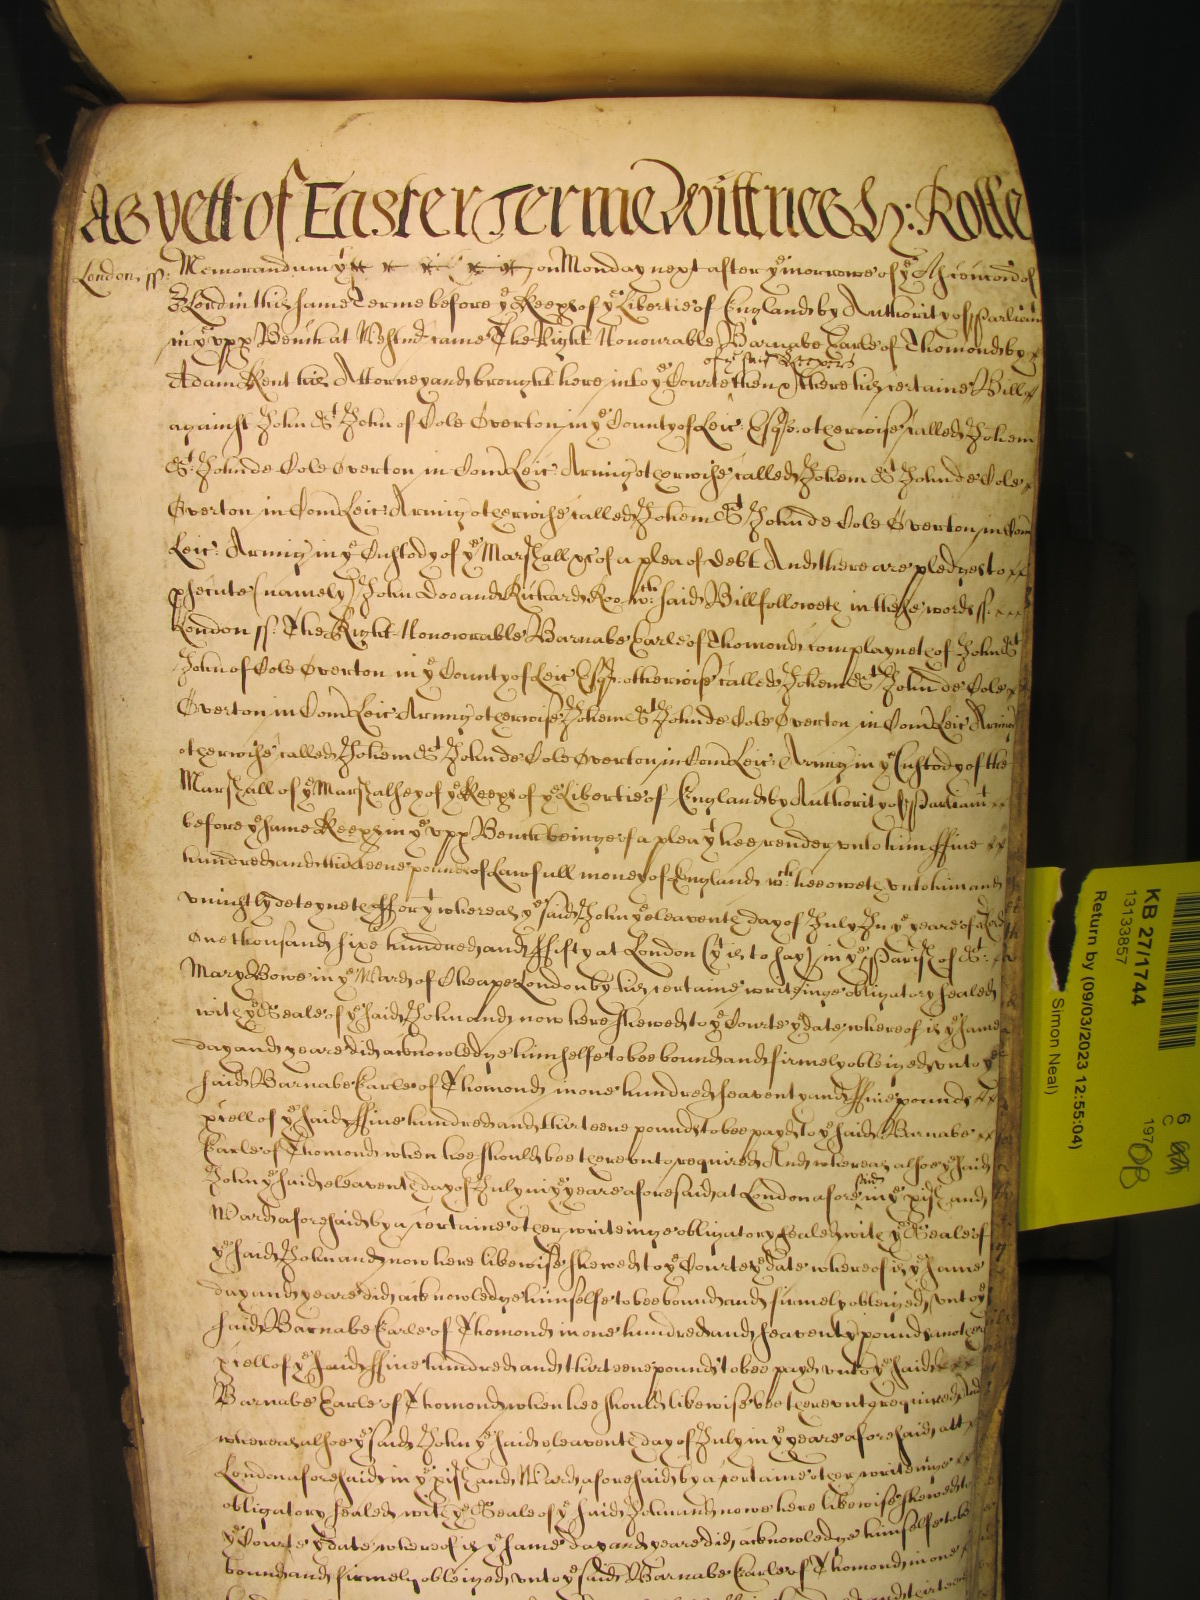 As yett of Easter Terme Wittnes H: Rolle
London ss: Memorandum yt on Monday next after ye morrowe of ye Ascencion of
ye Lord in this same Terme before ye Keeps of ye Libertie of England by Authority of Parliamt
in ye upp Bench at Westmr came The Right Honourable Barnabe Earle of Thomond by
of ye said Keepers
Adam Kent his Attorney and brought here into ye Courte then & there his certaine Bill
against John St John of Cole Overton in ye County of Leic: Esqr. otherwise called Johem
St. John de Cole Overton in Com Leic: Armig otherwise called Johem St John de Cole
Overton in Com Leic: Armig otherwise called Johem St John de Cole Overton in Com
Leic: Armig in ye Custody of ye Marshall &c of a plea of debt And there are pledges to
psecute (namely) John Doo and Richard Roo wch. said Bill followeth in these words ss.
London ss: The Right Honowrable Barnabe Earle of Thomond complayneth of John St
John of Cole Overton in ye County of Leic Esqr. otherwise called Johem St John de Cole
Overton in Com Leic Armig otherwise Johem St John de Cole Overton in Com Leic Armig
otherwise called Johem St John de Cole Overton in Com Leic: Armig in ye Custody of the
Marshall of ye Marshalsey of ye Keeps of ye Libertie of England by Authority of Parliamt
before ye same Keeps in ye upp Bench beinge of a plea yt hee render unto him ffive
hundred and thirteene pounds of Lawfull money of England wch. hee oweth unto him and
uniustly deteyneth ffor yt whereas ye said John ye eleaventh day of July In ye yeare of
one thousand sixe hundred and ffifty at London (yt is to say) in ye Parish of St.
Mary Bowe in ye Ward of Cheape London by his certaine writeinge obligatory sealed
with ye Seale of ye said John and now here shewed to ye Courte ye date whereof is ye same
day and yeare did acknowledge himselfe to bee bound and firmely obleiged unto ye
said Barnabe Earle of Thomond in one hundred seaventy and ffive pounds
pcell of ye said ffive hundred and thirteene pounds to bee payd to ye said Barnabe
Earle of Thomond when hee should bee thereunto required And whereas alsoe ye said
John ye said eleaventh day of July in ye yeare aforesaid at London aforesaid in ye pish and
Ward aforesaid by a certaine other writeinge obligatory sealed with ye Seale of
ye said John and now here likewise shewed to ye Courte ye date whereof is ye same
day and yeare did acknowledge himselfe to bee bound and firmely obleiged unto ye
said Barnabe Earle of Thomond in one hundred and seaventy pounds
pcell of ye said ffive hundred and thirteene pounds to bee payd unto ye said
Barnabe Earle of Thomond when hee should likewise bee thereunto required And
whereas alsoe ye said John ye said eleaventh day of July in ye yeare aforesaid att
London aforesaid in ye pish and Ward aforesaid by a certaine other writeinge
obligatory sealed with ye Seale of ye said John and nowe here likewise shewed to
ye Courte ye date whereof is ye same day and yeare did acknowledge himselfe to bee
bound and firmely obleiged unto ye said Barnabe Earle of Thomond in one
KB 27/1744
13133857
Return by (09/03/2023 12:55:04)
Simon Neal)
6
C